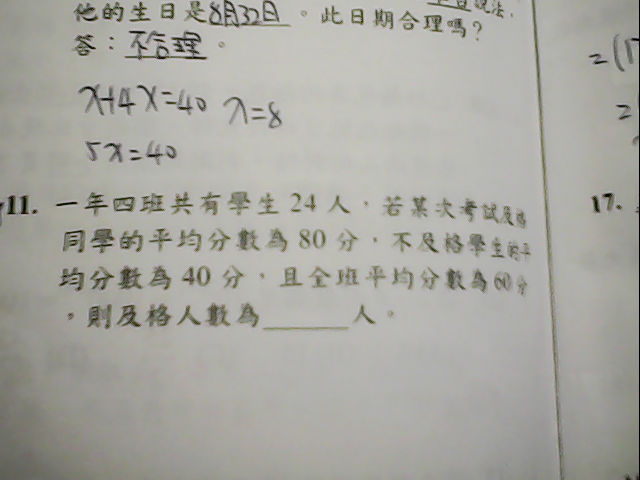 他的生日是8月32日。此日期合理嗎？
答：不合理。
x+4x=40 x=8
5x=40
11. 一年四班共有學生 24 人，若某次考試及格
同學的平均分數為 80 分，不及格學生的平
均分數為 40 分，且全班平均分數為 60 分
，則及格人數為______人。
17.